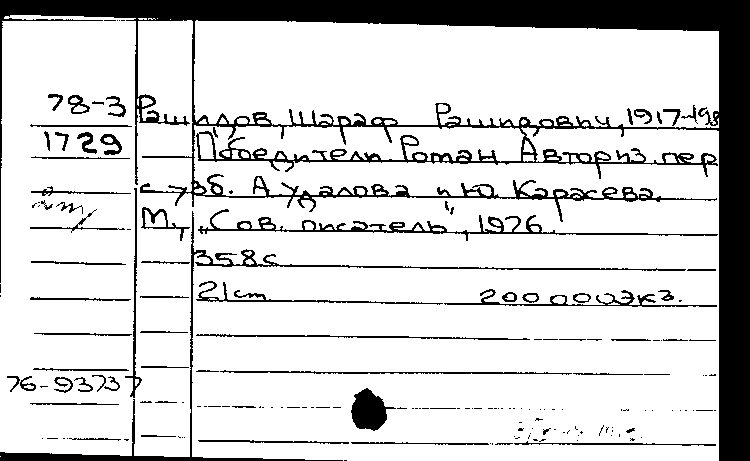 78-3 Рашидов, Шараф Рашидович, 1917-198
1729 Победители. Роман. Авториз. пер
с узб. А. Удалова и Ю. Карасева.
М., „Сов. писатель", 1976.
358с
21cm 200000экз.
76-93737